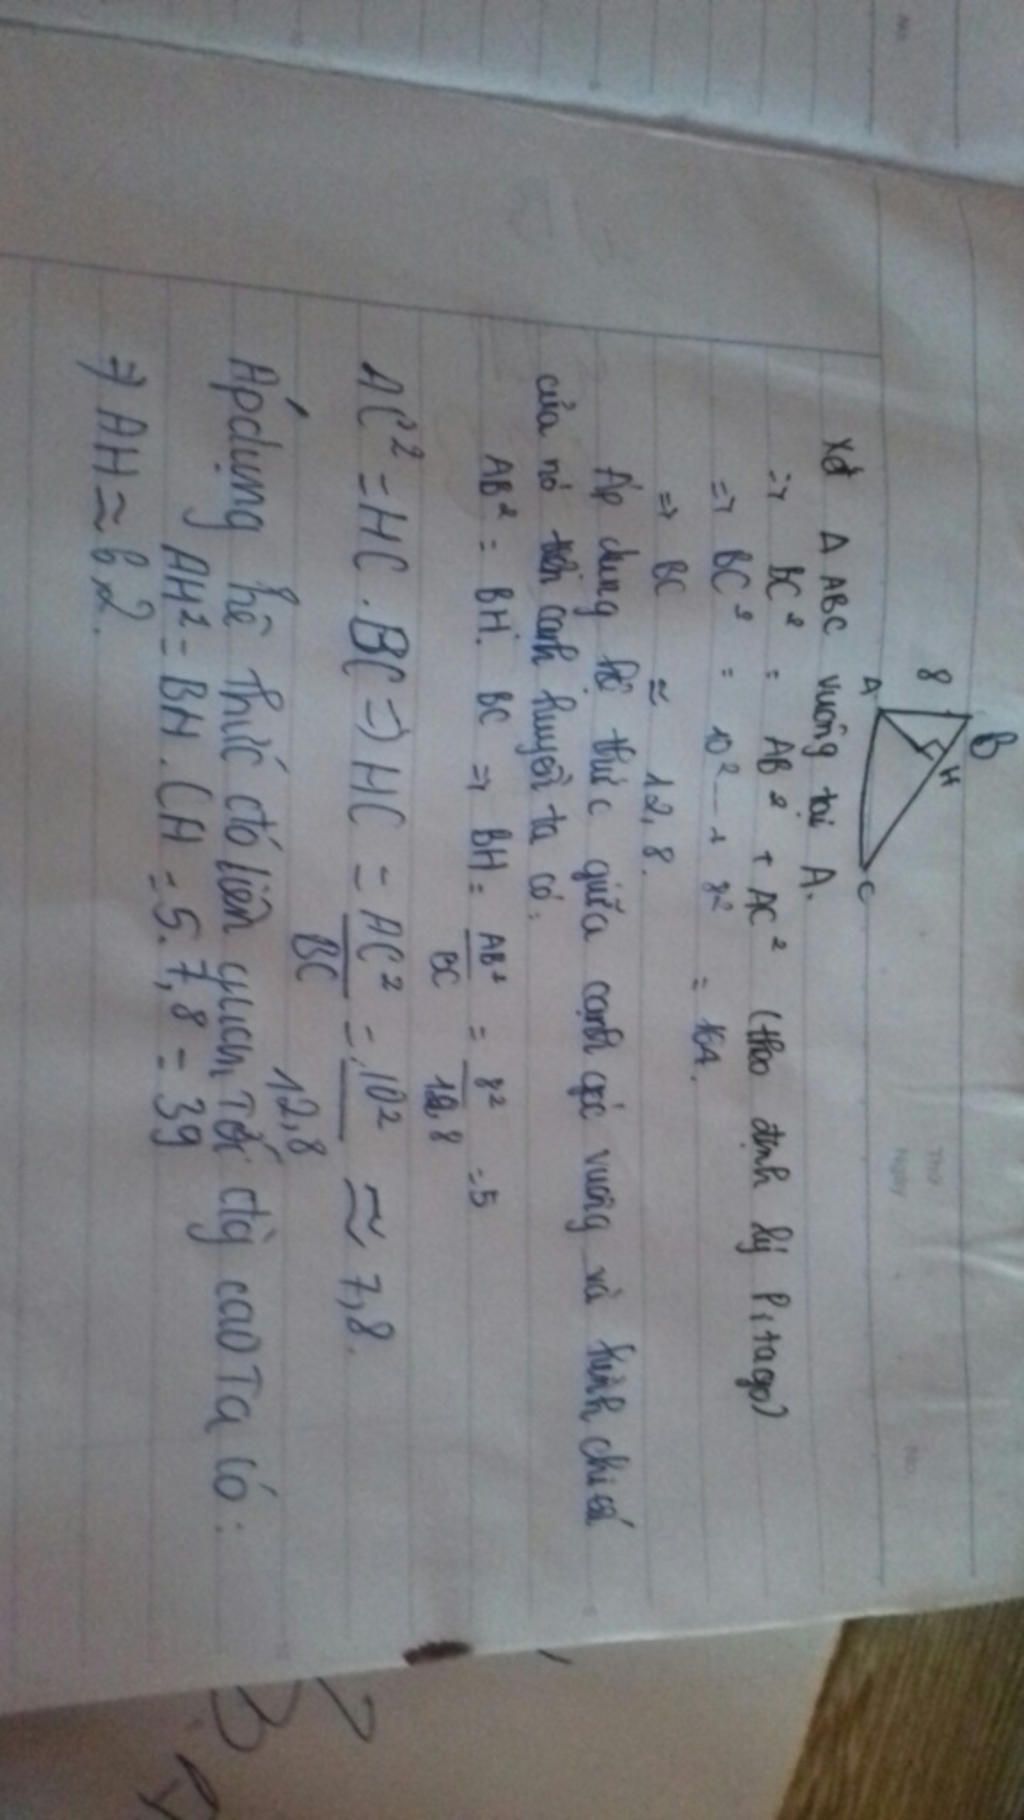 B
8
H
A
C
Xét Δ ABC vuông tại A.
=> BC² = AB² + AC² (theo định lý Pitago)
=> BC² = 10² + 8² = 164.
=> BC ≈ 12,8.
Áp dụng hệ thức giữa cạnh góc vuông và hình chiếu
của nó trên cạnh huyền ta có:
AB² = BH. BC => BH = AB²/BC = 8²/12,8 = 5
AC² = HC . BC => HC = AC²/BC = 10²/12,8 ≈ 7,8.
Áp dụng hê thức có liên quan tới đg cao Ta có:
AH² = BH . CH = 5. 7,8 = 39
=> AH ≈ 6,2.
Thứ
Ngày
No.